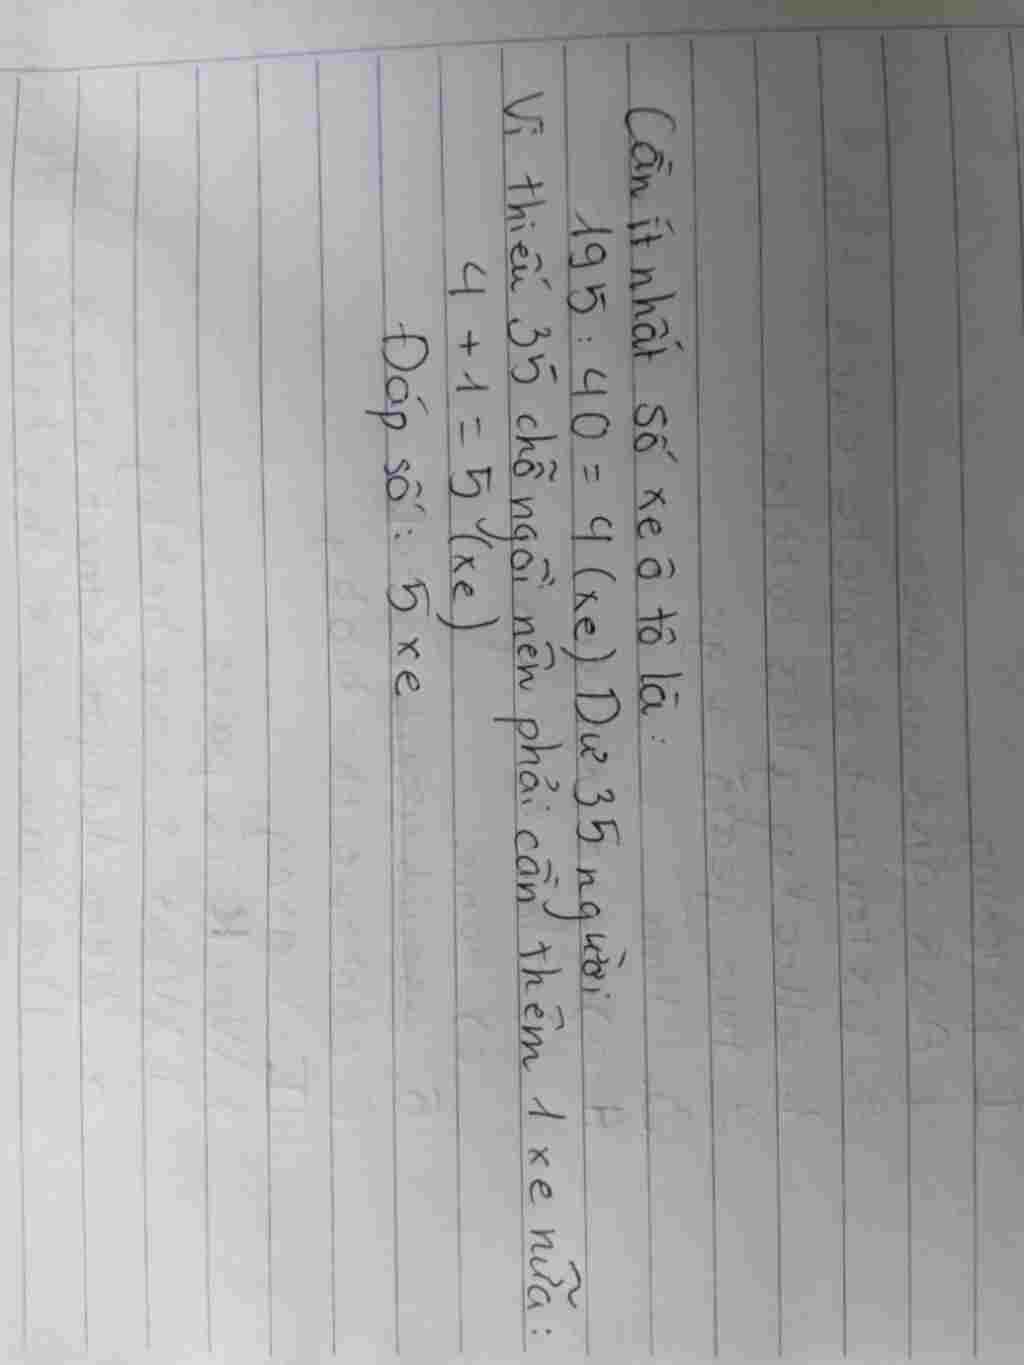 Cần ít nhất số xe ô tô là:
195 : 40 = 4 (xe) Dư 35 người
Vì thiếu 35 chỗ ngồi nên phải cần thêm 1 xe nữa:
4 + 1 = 5 (xe)
Đáp số: 5 xe